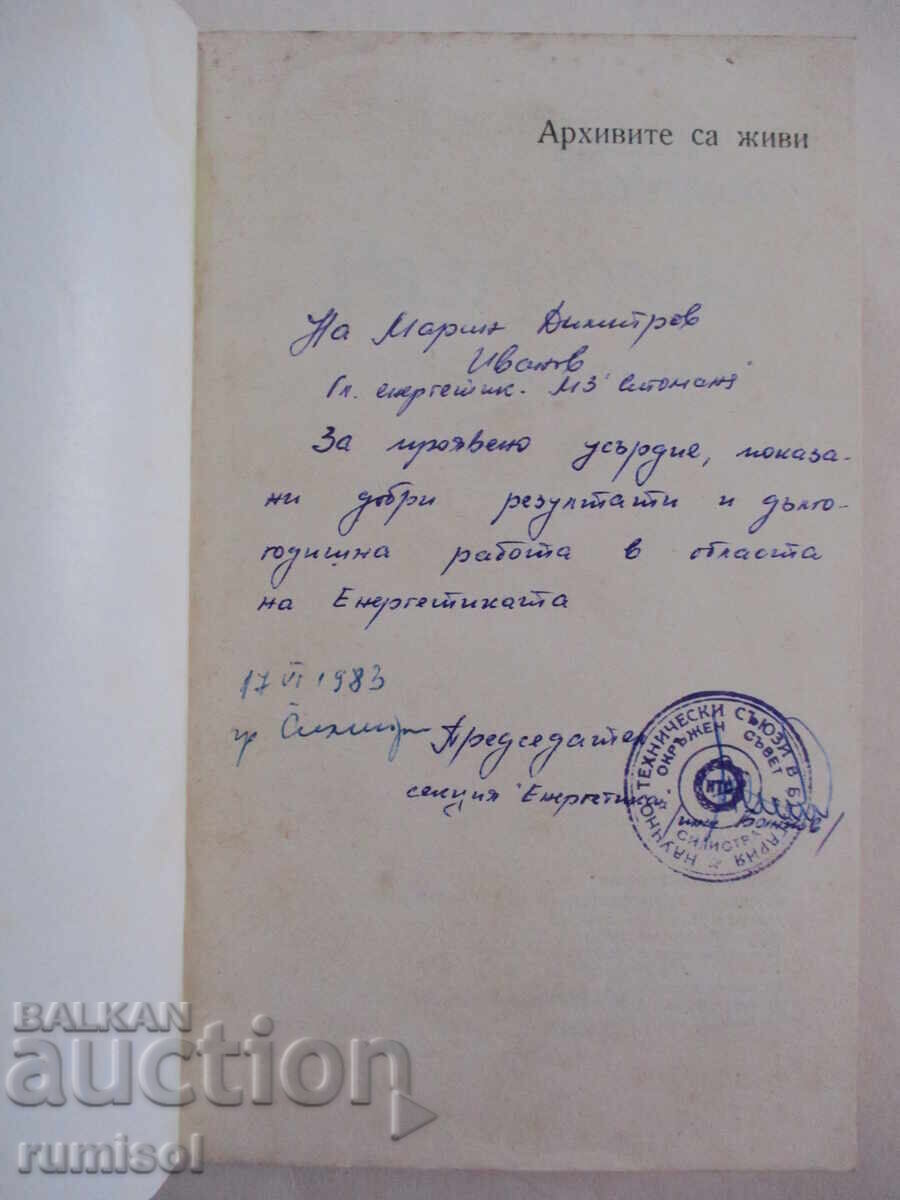 Архивите са живи
На Марин Димитров
Иванов
Гл. енергетик. МЗ "Стомана"
За проявено усърдие, показа-
ни добри резултати и дълго-
годишна работа в областа
на Енергетиката
17 VI 1983
гр
Председател
секция "Енергетика"
НАУЧНО-ТЕХНИЧЕСКИ СЪЮЗИ В БЪЛГАРИЯ
ОКРЪЖЕН СЪВЕТ
НТС
СИЛИСТРА
инж
BALKAN
auction
rumisol